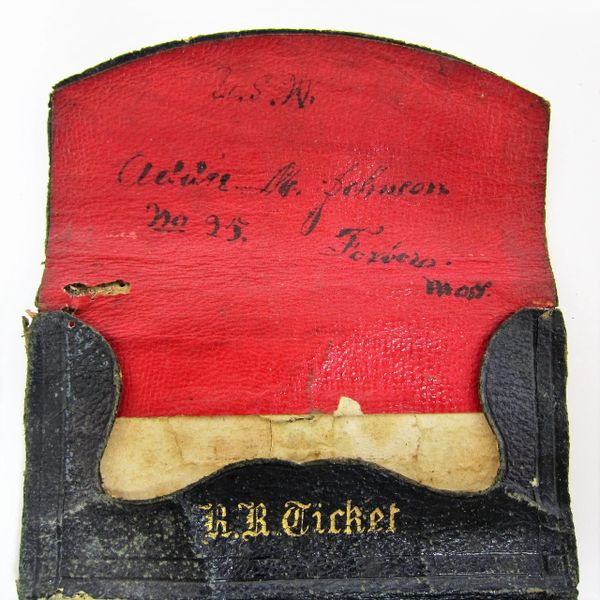 U.S.W.
Addie M. Johnson
No 25.
Foxboro.
Mass.
R.R. Ticket